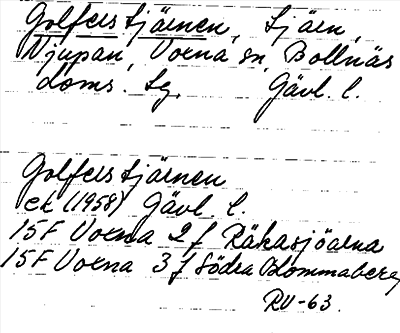 Golfers tjärnen, Tjärn,
Njupan, Voxna sn, Bollnäs
doms. sg, Gävl. l.
Golfers tjärnen
ek (1958) Gävl. l.
15F Voxna 2 f Räkasjöarna
15F Voxna 3 f Södra Blommaberg
RN-63.